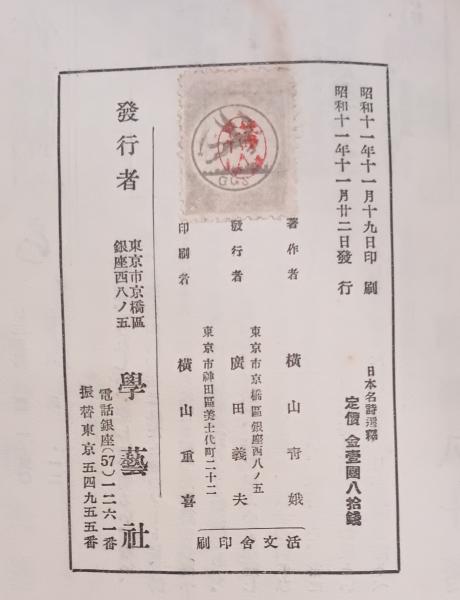 昭和十一年十一月十九日印刷
昭和十一年十一月廿二日發行
日本名詩選釋
定價 金壹圓八拾錢
著作者 橫山靑娥
東京市京橋區銀座西八ノ五
發行者 廣田義夫
東京市神田區美土代町二十二
印刷者 橫山重喜
活文舍印刷
GGS
發行者
東京市京橋區
銀座西八ノ五
學藝社
電話銀座(57)一二六一番
振替東京五四九五五番